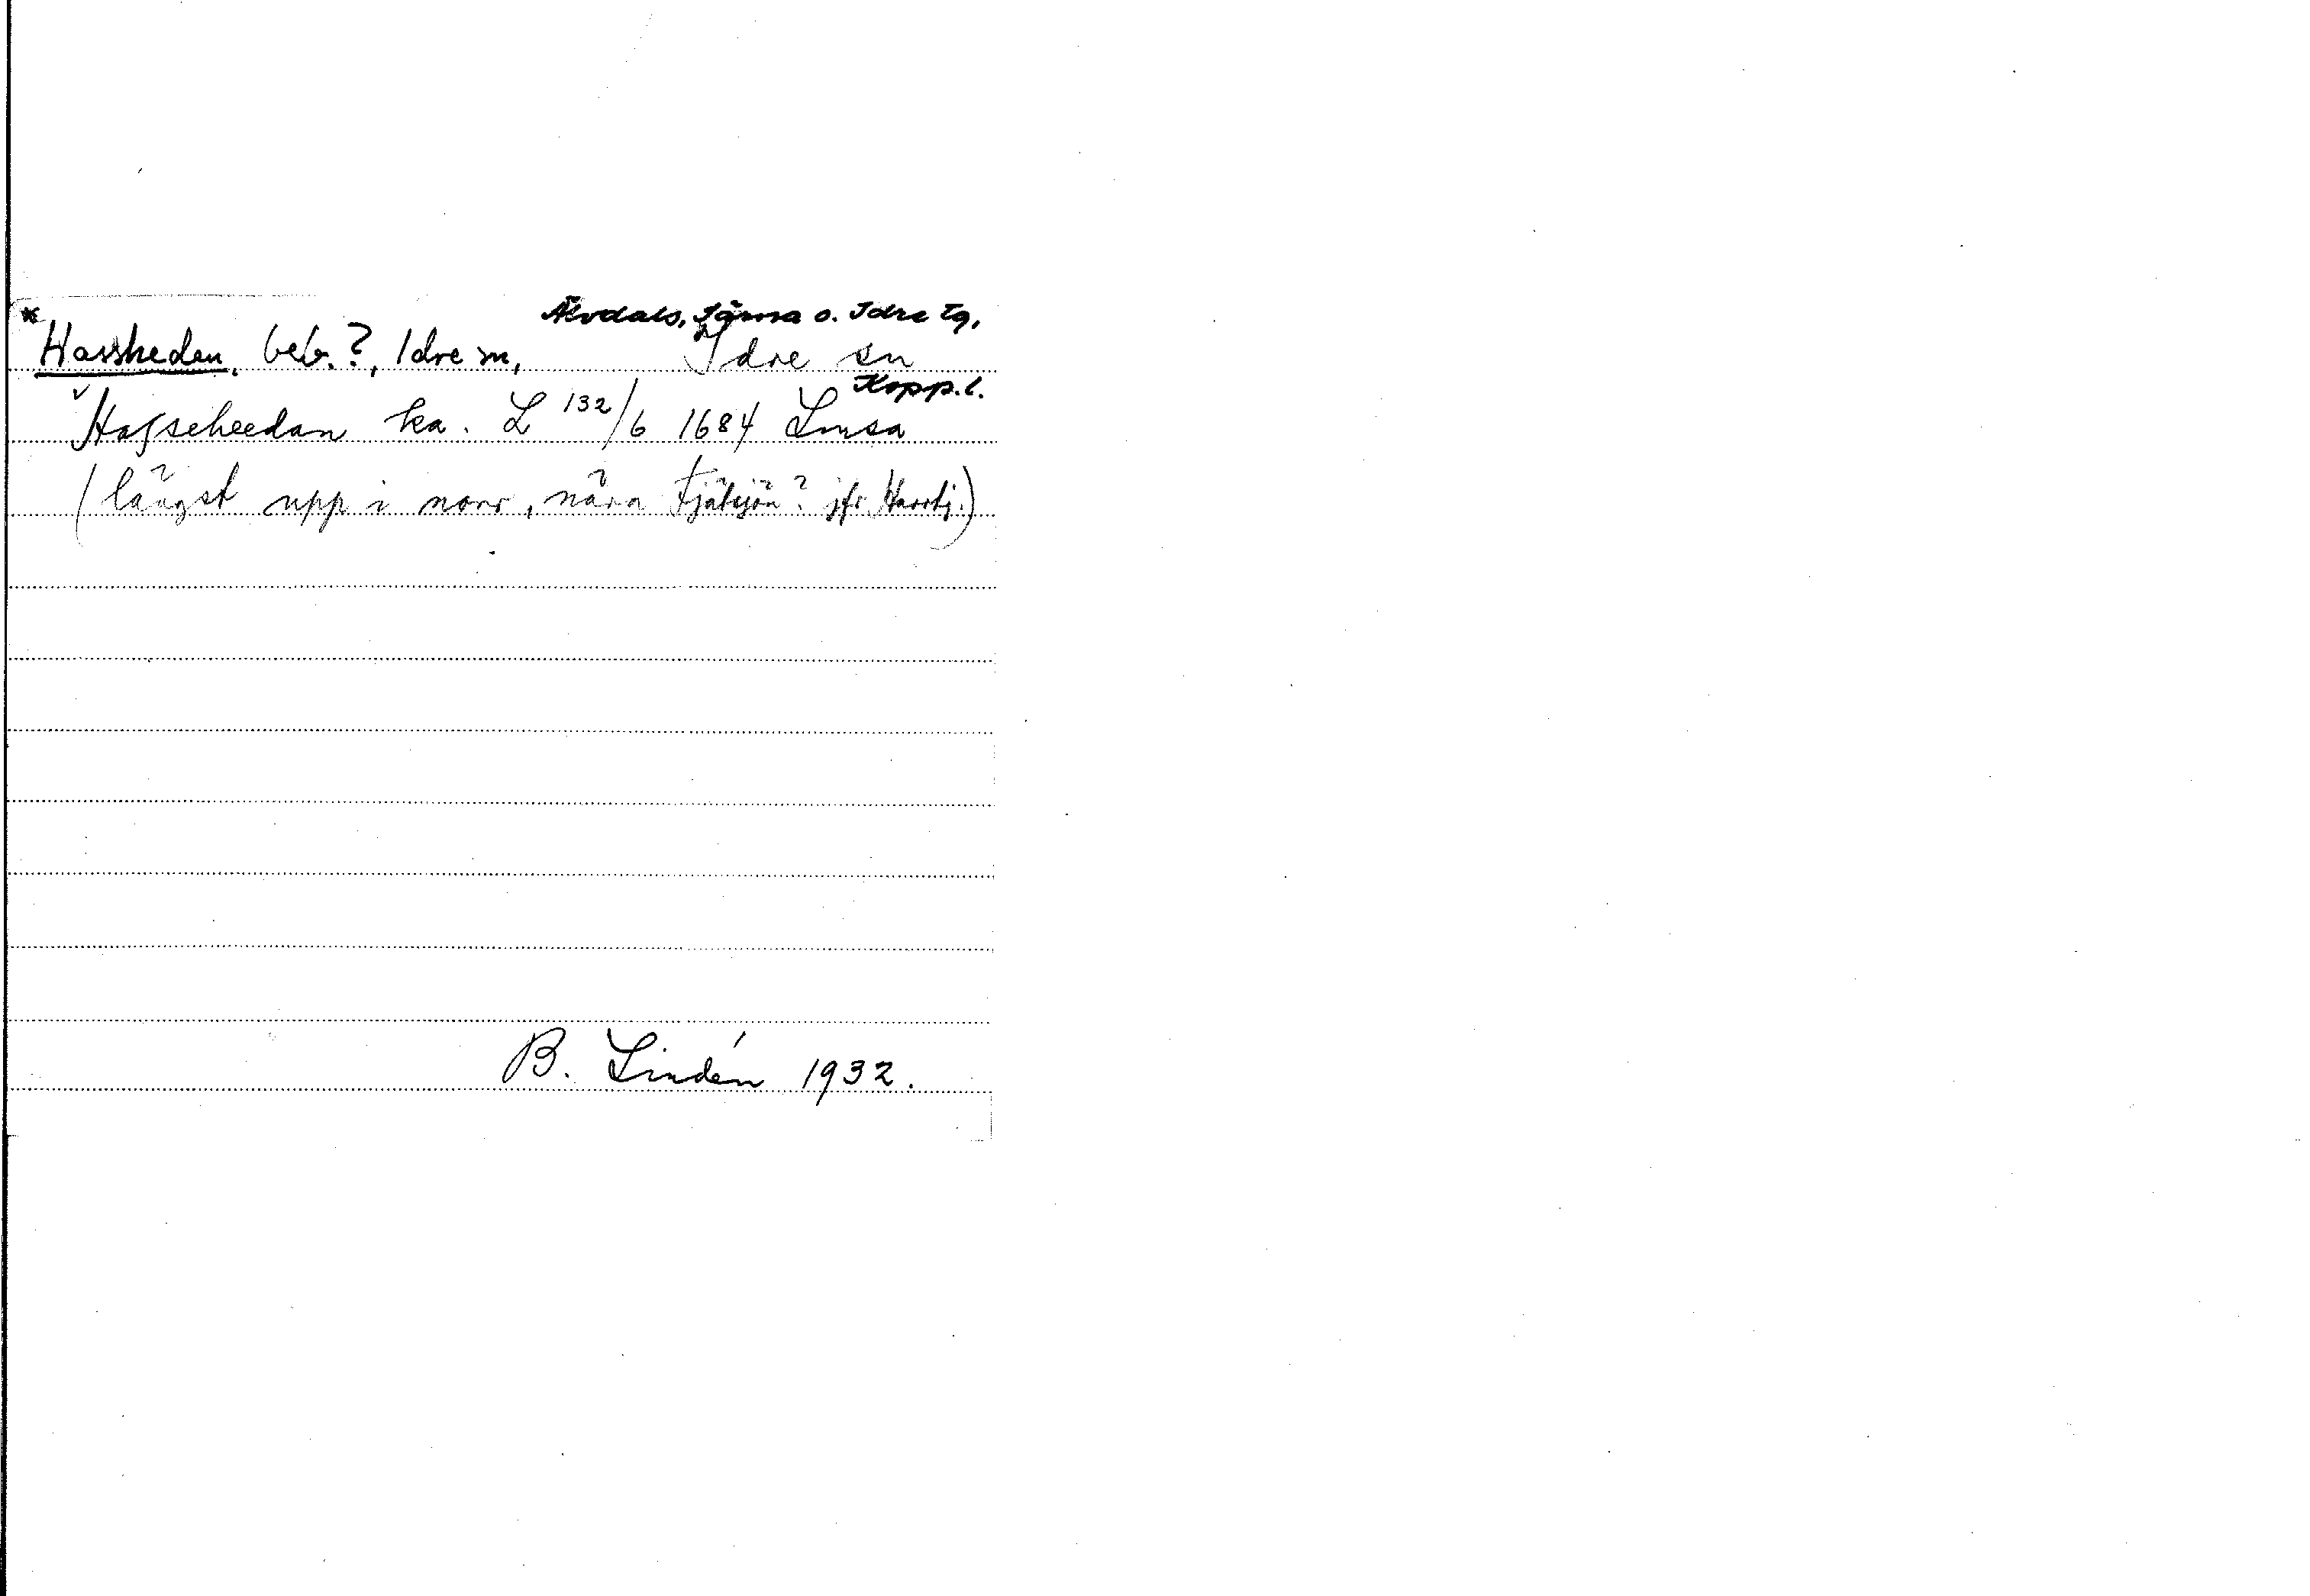 Älvdals, Särna o. Idre tg,
*Hassheden, beb.?, Idre sn, Idre sn
Kopp.l.
Hasseheedan ka. L 132/6 1684 Lmsa
(längst upp i norr, nära jfr
B. Lindén 1932.